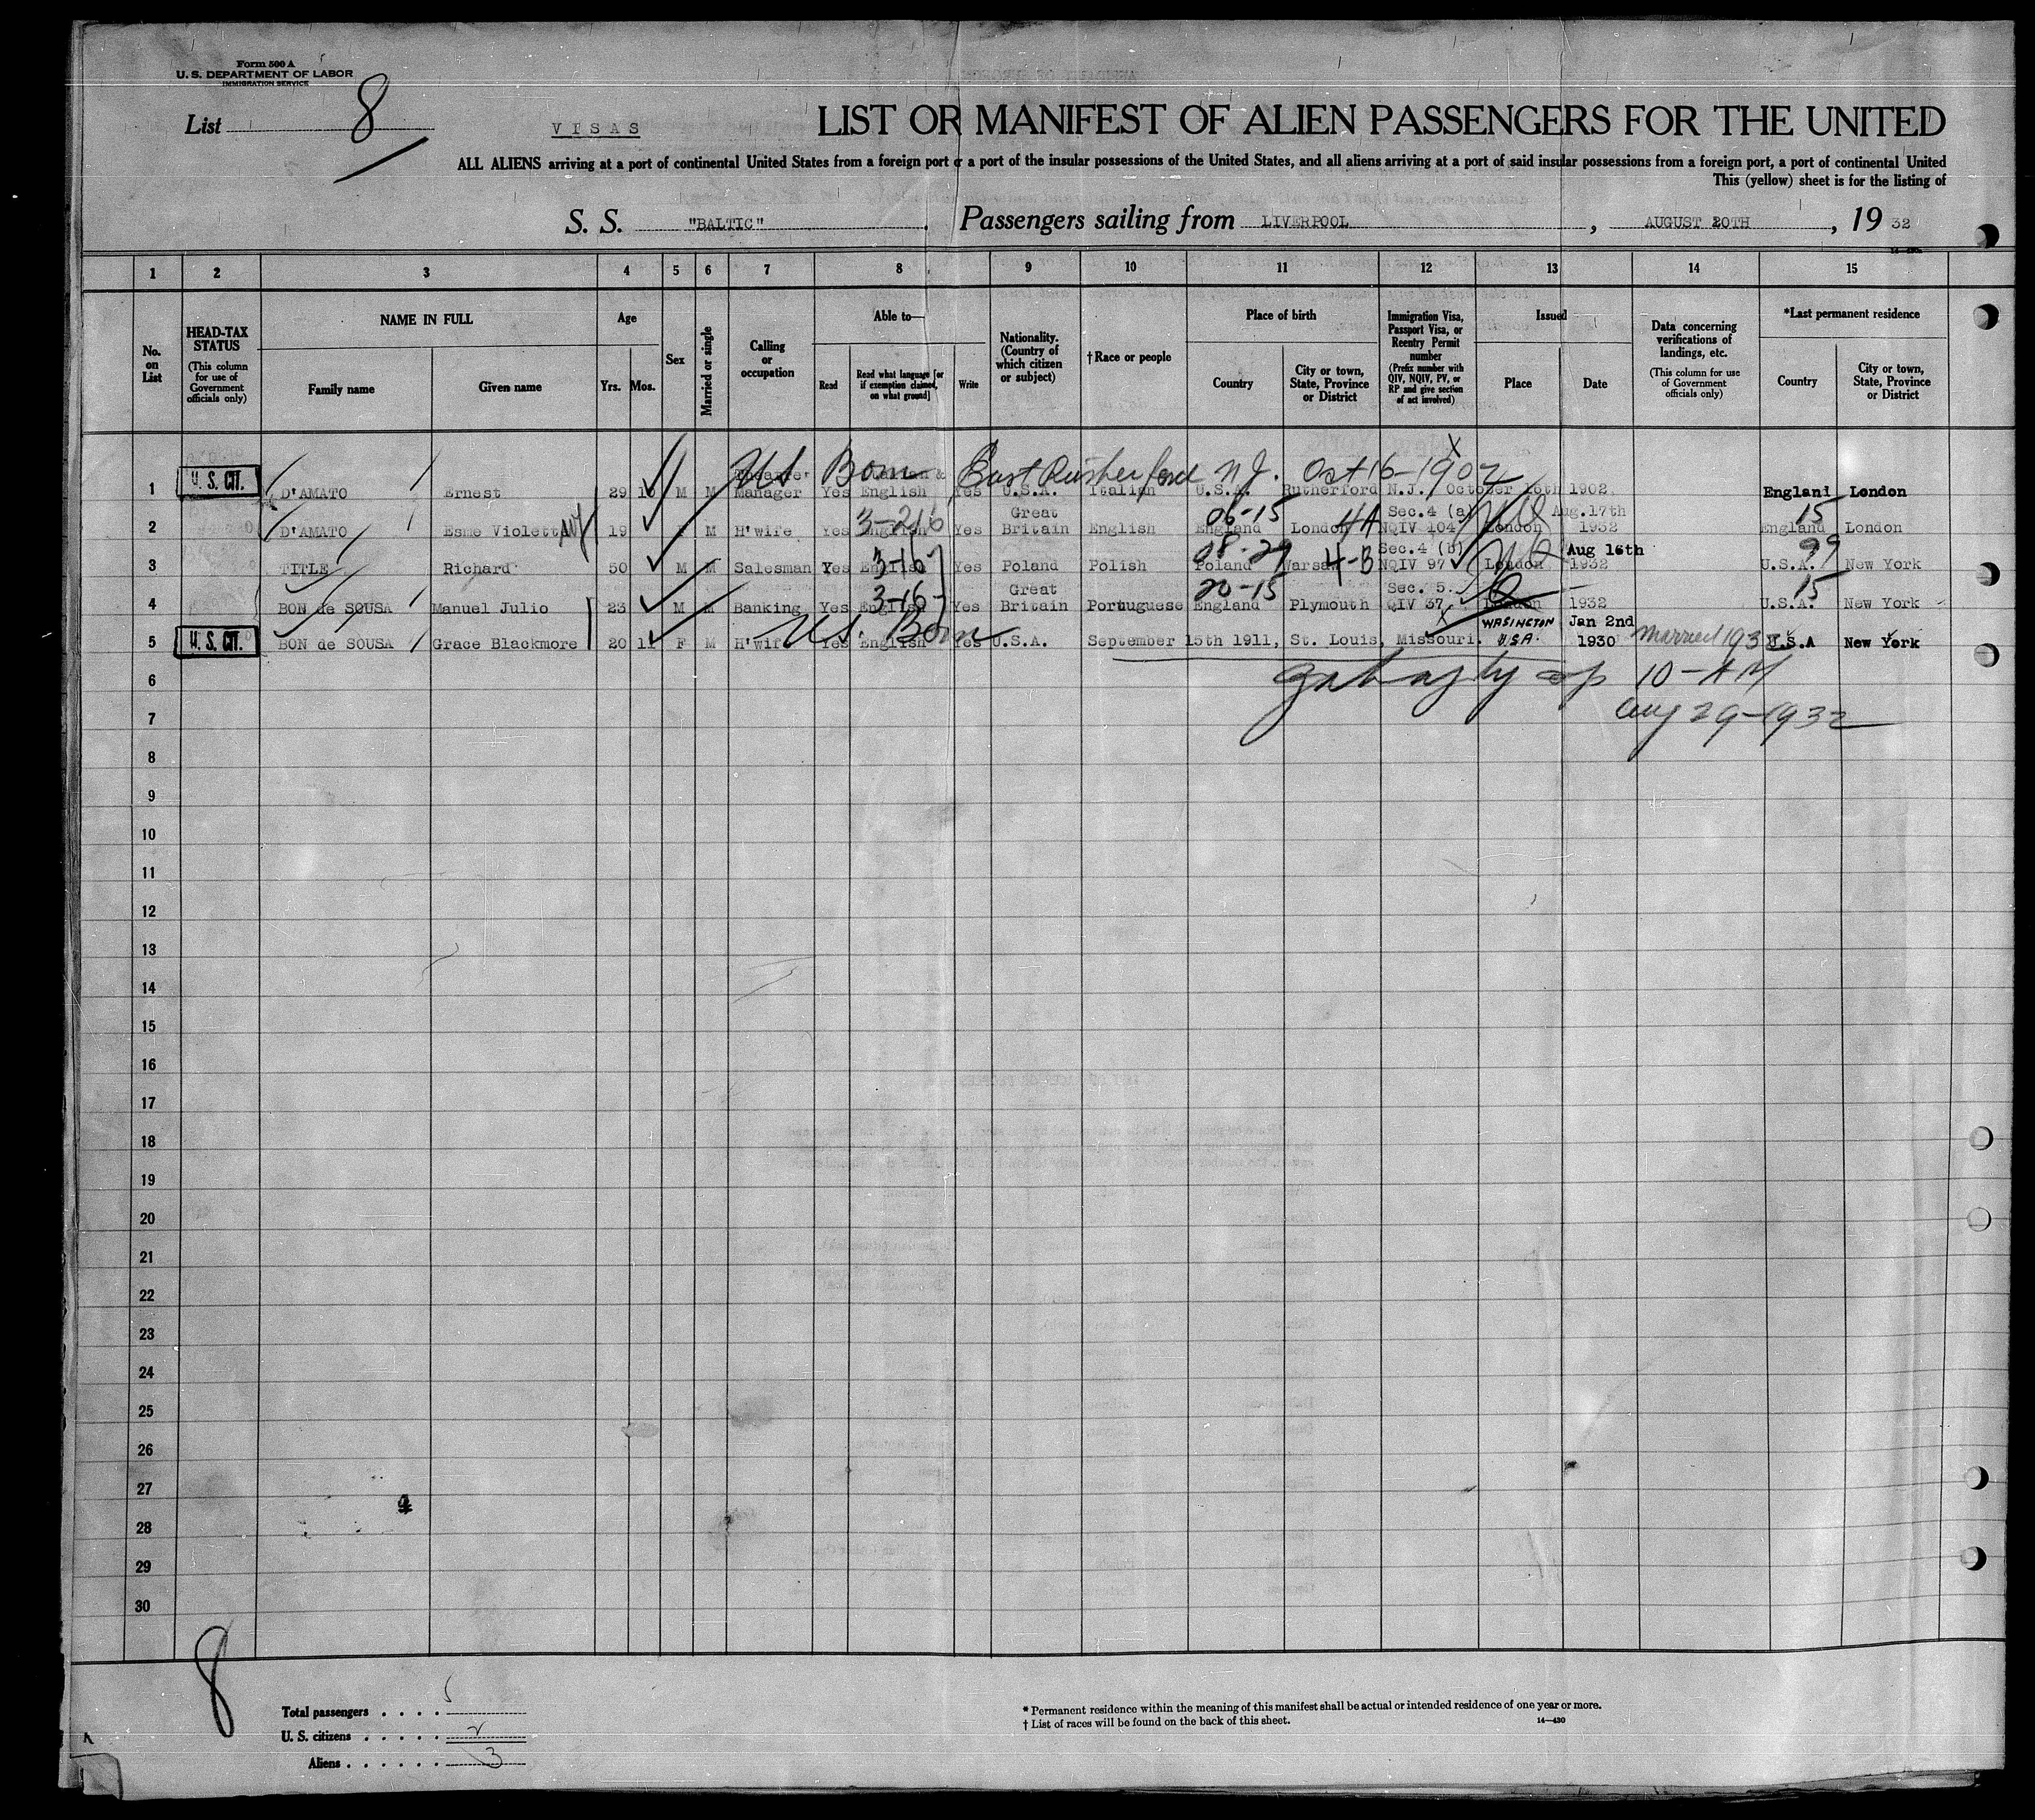 Form 500 A
U. S. DEPARTMENT OF LABOR
IMMIGRATION SERVICE
List 8
VISAS
LIST OR MANIFEST OF ALIEN PASSENGERS FOR THE UNITED
ALL ALIENS arriving at a port of continental United States from a foreign port or a port of the insular possessions of the United States, and all aliens arriving at a port of said insular possessions from a foreign port, a port of continental United
This (yellow) sheet is for the listing of
S. S. "BALTIC" . Passengers sailing from LIVERPOOL , AUGUST 20TH , 19 32
1 2 3 4 5 6 7 8 9 10 11 12 13 14 15
No. on List
HEAD-TAX STATUS
(This column for use of Government officials only)
NAME IN FULL
Family name Given name
Age
Yrs. Mos.
Sex
Married or single
Calling or occupation
Able to—
Read
Read what language [or if exemption claimed, on what ground]
Write
Nationality. (Country of which citizen or subject)
†Race or people
Place of birth
Country
City or town, State, Province or District
Immigration Visa, Passport Visa, or Reentry Permit number
(Prefix number with QIV, NQIV, PV, or RP and give section of act involved)
Issued
Place Date
Data concerning verifications of landings, etc.
(This column for use of Government officials only)
*Last permanent residence
Country
City or town, State, Province or District
US Born East Rutherford N.J. Oct 16-1902
1 U. S. CIT. D'AMATO Ernest 29 10 M M Manager Yes English Yes U.S.A. Italian U.S.A. Rutherford N.J. October 16th 1902. England London
Great 06-15 Sec.4 (a) Aug.17th 15
2 D'AMATO Esme Violett 19 F M H'wife Yes English 3-216 Yes Britain English England London 4A NQIV 104 London 1932 England London
08-29 Sec.4 (b) Aug 16th 99
3 TITLE Richard 50 M M Salesman Yes English 3-16 Yes Poland Polish Poland Warsaw 4-B NQIV 97 London 1932 U.S.A. New York
Great 20-15 Sec. 5. 15
4 BON de SOUSA Manuel Julio 23 M M Banking Yes 3-16 Yes Britain Portuguese England Plymouth QIV 37 London 1932 U.S.A. New York
U.S. Born WASINGTON Jan 2nd
5 U. S. CIT. BON de SOUSA Grace Blackmore 20 11 F M H'wife Yes English Yes U.S.A. September 15th 1911, St. Louis, Missouri. U.S.A. 1930 Married 193 U.S.A New York
6 10-AM
7 Aug 29-1932
8
9
10
11
12
13
14
15
16
17
18
19
20
21
22
23
24
25
26
27
28
29
30
8
Total passengers . . . . 5
U. S. citizens . . . . . 2
Aliens . . . . . . 3
* Permanent residence within the meaning of this manifest shall be actual or intended residence of one year or more.
† List of races will be found on the back of this sheet. 14—430